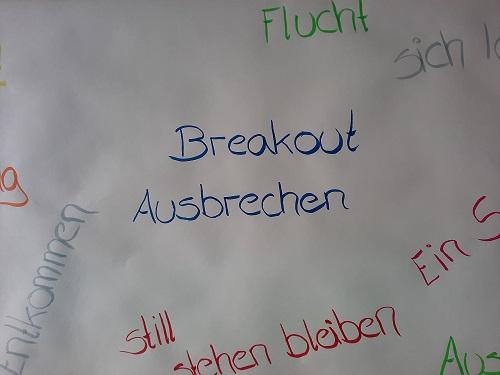 Flucht
sich
Breakout
Ausbrechen
Entkommen
Ein
still
stehen bleiben